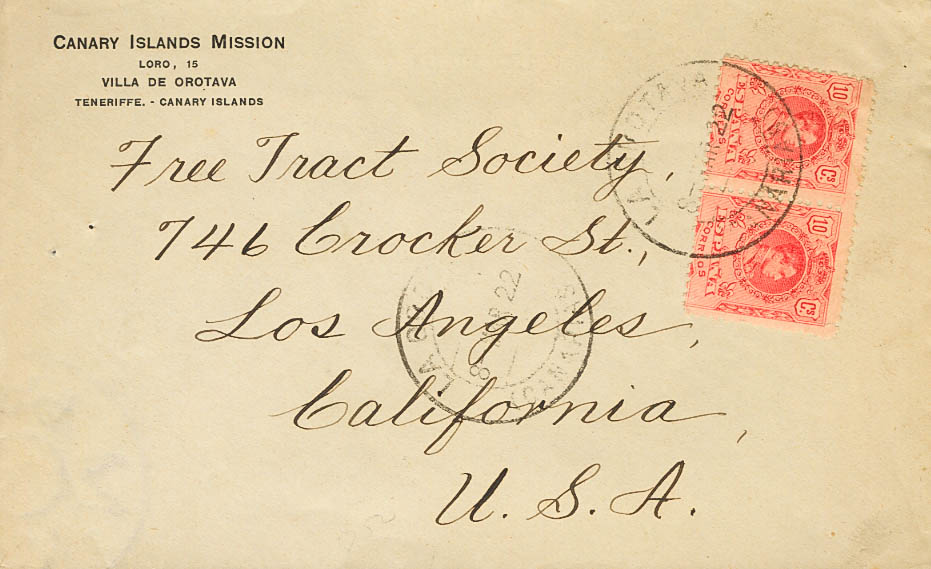 CANARY ISLANDS MISSION
LORO, 15
VILLA DE OROTAVA
TENERIFFE. - CANARY ISLANDS
Free Tract Society,
746 Crocker St.,
Los Angeles,
California,
U. S. A.
10
ESPAÑA
CORREOS
Cs
10
ESPAÑA
CORREOS
Cs
LA OROTAVA
22
LA ORO
8 22